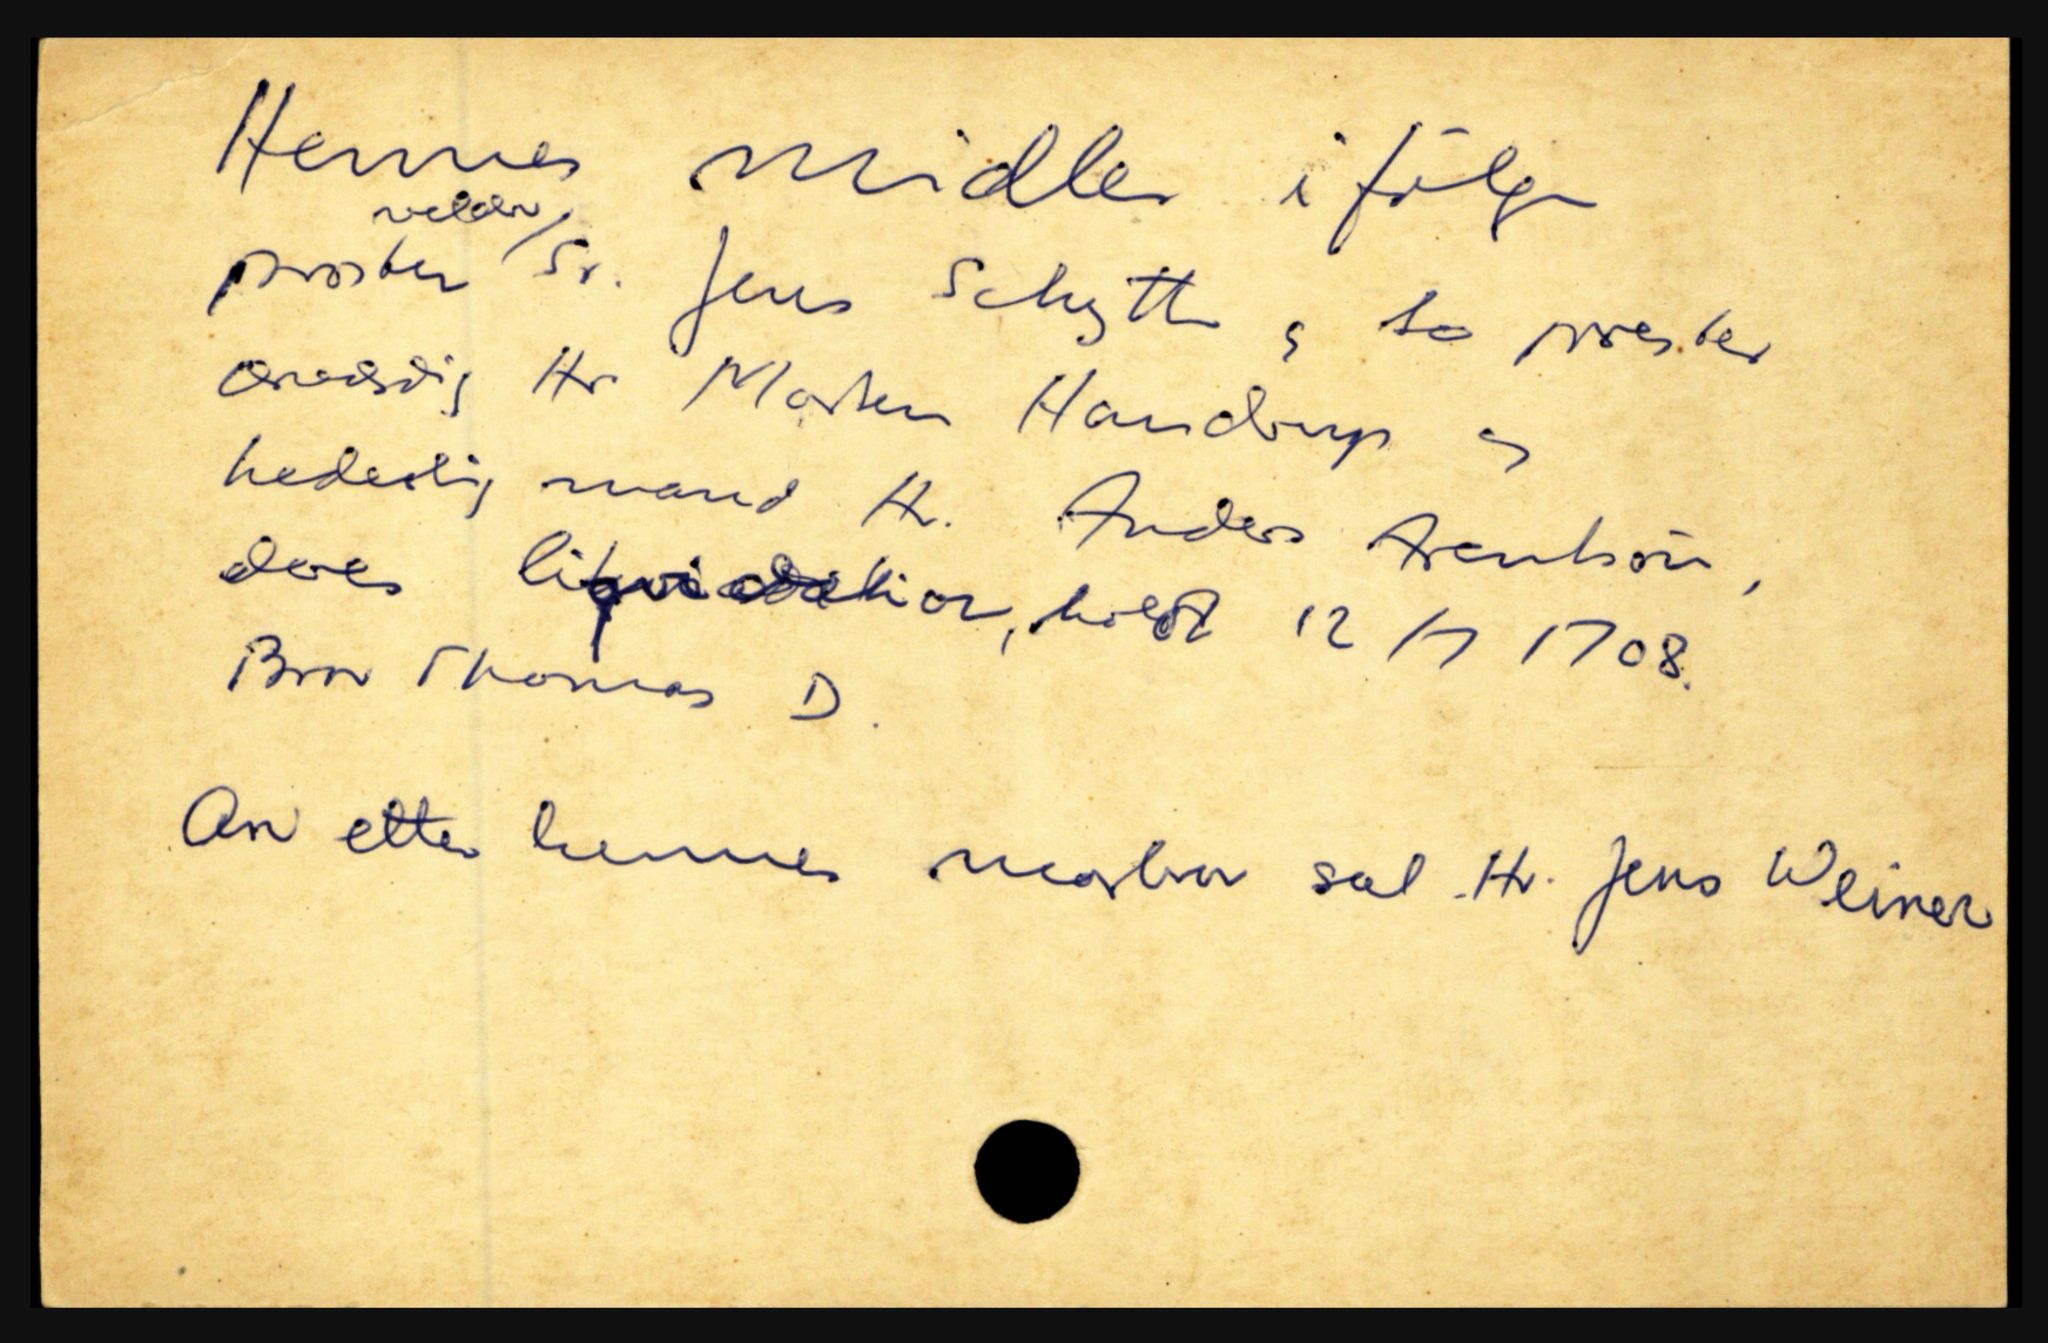 Hennes midler ifölge
velærv.
prosten Sr. Jens Schytte, og to prester
ærværdig Hr Morten Handrup og
hederlig mand Hr. Anders Arentsön,
deres liqvidation, holdt 12/7 1708.
Bror Thomas D.
Arv etter hennes morbror sal. Hr. Jens Weiner